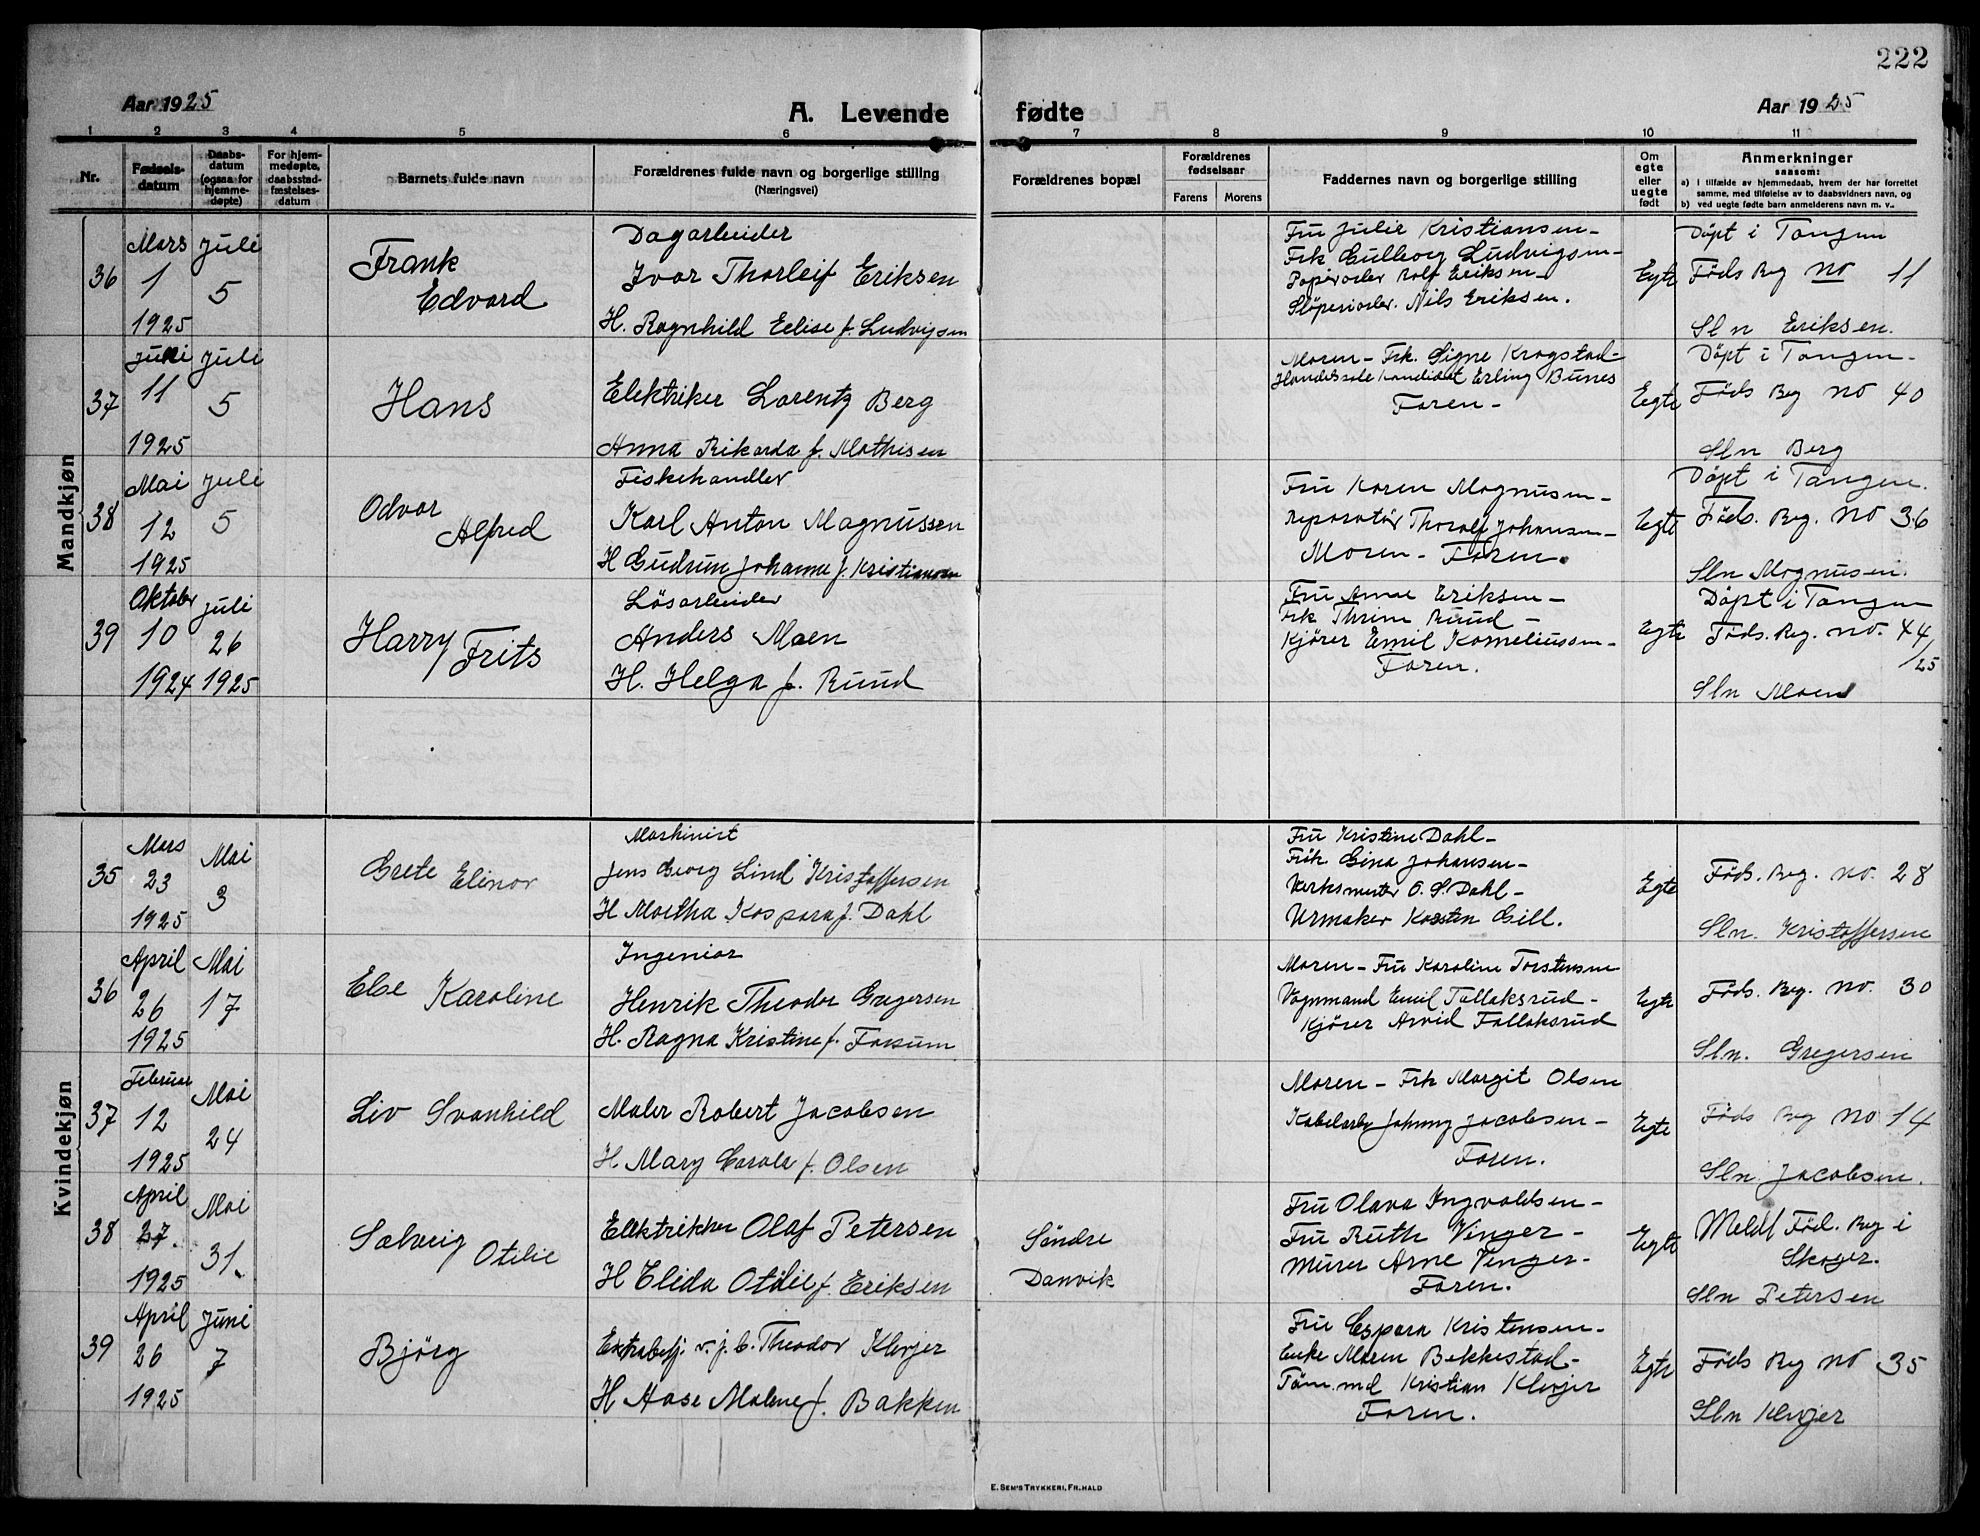 222
Aar 1925
A. Levende fødte
Aar 1925
1 2 3 4 5 6 7 8 9 10 11
Nr.
Fødsels-
datum
Daabs-
datum
(ogsaa for
hjemme-
døpte)
For hjem-
medøpte,
daabsstad-
fæstelses-
datum
Barnets fulde navn
Forældrenes fulde navn og borgerlige stilling
(Næringsvei)
Forældrenes bopæl
Forældrenes
fødselsaar
Farens Morens
Faddernes navn og borgerlige stilling
Om
egte
eller
uegte
født
Anmerkninger
saasom:
a) i tilfælde av hjemmedaab, hvem der har forrettet
samme, med tilføielse av to daabsvidners navn, og
b) ved uegte fødte barn anmelderens navn m. v..
Mandkjøn
36
Mars
1
1925
Juli
5
Frank
Edvard
Dagarbeider
Ivar Thorleif Eriksen
H. Ragnhild Eelise f. Ludvigsen
Fru Julie Kristiansen-
Frk Gulborg Ludvigsen-
Papirarbder Rolf Eriksen-
Nils Eriksen.
Egte
Döpt i Tangen
Föds Reg no 11
Sln Eriksen.
37
Juni
11
1925
Juli
5
Hans
Elektriker Lorentz Berg
Anna Rikarda f. Mathisen
Moren - Frk. Signe Krogstad-
Kandidat Erling Bunes
Faren -
Egte
Döpt i Tangen-
Föds Reg no 40
Sln Berg
38
Mai
12
1925
Juli
5
Odvar
Alfred
Fiskehandler
Karl Anton Magnussen
H Gudrun Johanne f. Kristiansen
Fru Karen Magnusen-
Reparatör Thoralf Johansen-
Moren - Faren.
Egte
Döpt i Tangen.
Föds. Reg. no 36
Sln Magnusen.
39
Oktober
10
1924
Juli
26
1925
Harry Frits
Løsarbeider
Anders Moen
H. Helga f. Ruud
Fru Anna Eriksen-
Frk Thrine Ruud -
Kjörer Emil Korneliussen-
Faren.
Egte
Döpt i Tangen
Föds. Reg. no. 44
/25
Sln Moen
Kvindekjøn
35
Mars
23
1925
Mai
3
Grete Elinor
Maskinist
Jens Georg Lind Kristoffersen
H Martha Kaspara f. Dahl
Fru Kristine Dahl-
Frk Gina Johansen-
Verksmester O. S. Dahl-
Urmaker Karsten Gill.
Egte
Föds. Reg. no. 28
Sln. Kristoffersen
36
April
26
1925
Mai
17
Else Karoline
Ingeniør
Henrik Theodor Gregersen
H. Ragna Kristine f. Forsum
Moren - Fru Karoline Torstensen
Vognmand Emil Tollaksrud -
Kjörer Arvid Follaksrud
Egte
Föds. Reg. no. 30
Sln. Gregersen
37
Februar
12
1925
Mai
24
Liv Svanhild
Maler Robert Jacobsen
H Mary Carola f. Olsen
Moren - Frk Margit Olsen
Kabelarb Johnny Jacobsen -
Faren.
Egte
Föds Reg no 14
Sln Jacobsen.
38
April
27.
1925
Mai
31.
Solveig Otilie
Elektriker Olaf Petersen
H Elida Otilie f. Eriksen
Søndre
Danvik
Fru Olava Ingvaldsen -
Fru Ruth Vinger -
Murer Arne Vinger-
Faren.
Egte
Meldt Föd. Reg i
Skoger.
Sln Petersen
39
April
26
1925
Juni
7
Bjørg
Extrabetj. v. j. b. Theodor Klevjer
H Aase Malene f. Bakken
Fru Espara Kristensen-
Enke Maren Bekkestad-
Töm.md Kristian Klevjer
Faren.
Egte
Föds Reg no 35
Sln Klevjer
E. SEM'S TRYKKERI, FR.HALD